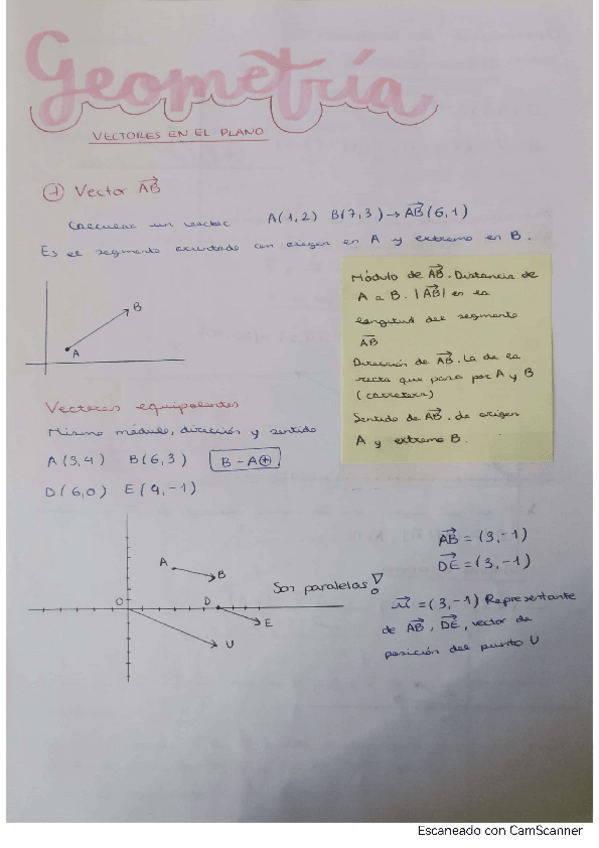 Geometría
VECTORES EN EL PLANO
1 Vector AB
Calcular un vector A(1,2) B(7,3) → AB(6,1)
Es el segmento orientado con origen en A y extremo en B.
B
A
Módulo de AB. Distancia de
A a B. |AB| es la
longitud del segmento
AB
Dirección de AB. La de la
recta que pasa por A y B
(carretera)
Sentido de AB. de origen
A y extremo B.
Vectores equipolentes
Mismo módulo, dirección y sentido
A(3,4) B(6,3) B-A⊕
D(6,0) E(9,-1)
A
B
Son paralelas!
O
D
E
U
AB = (3,-1)
DE = (3,-1)
u = (3,-1) Representante
de AB, DE, vector de
posición del punto U
Escaneado con CamScanner